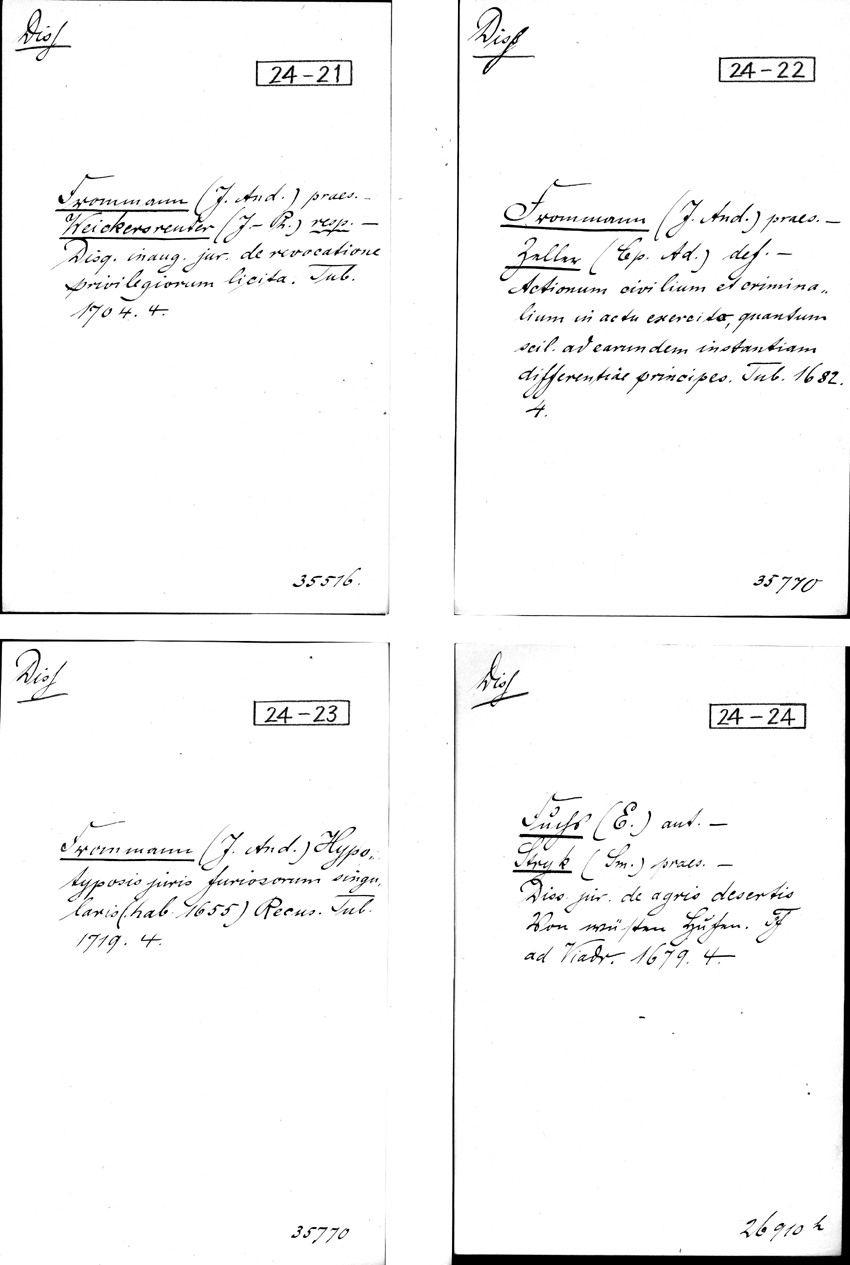 Diss
24-21
Frommann (J. And.) praes. —
Weickersreuter (J- R.) resp. —
Disq. inaug. jur. de revocatione
privilegiorum licita. Tub.
1704. 4.
35516.
Diss
24-22
Frommann (J. And.) praes. —
Zeller (Cp. Ad.) def. —
Actionum civilium et crimina„
lium in actu exercito, quantum
scil. ad earundem instantiam
differentiae principes. Tub. 1682.
4.
35770
Diss
24-23
Frommann (J. And.) Hypo„
typosis juris furiosorum singu„
laris (hab. 1655) Recus. Tub.
1719. 4.
35770
Diss
24-24
Fuchs (E.) aut. —
Stryk (Sm.) praes. —
Diss. jur. de agris desertis
Von wüsten Hufen. Ff
ad Viadr. 1679. 4.—
26910 h